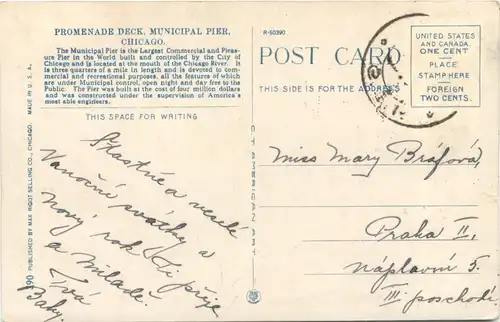 PROMENADE DECK, MUNICIPAL PIER,
CHICAGO.
The Municipal Pier is the Largest Commercial and Pleas-
ure Pier in the World built and controlled by the City of
Chicago and is located at the mouth of the Chicago River. It
is three quarters of a mile in length and is devoted to com-
mercial and recreational purposes, all the features of which
are under Municipal control, open night and day free to the
Public. The Pier was built at the cost of four million dollars
and was constructed under the supervision of America's
most able engineers.
THIS SPACE FOR WRITING
Šťastné a veselé
Vanoční svátky a
nový rok Ti přeje
a mládě.
Tvá
Baby.
PUBLISHED BY MAX RIGOT SELLING CO., CHICAGO. MADE IN U.S.A.
R-50390
POST CARD
THIS SIDE IS FOR THE ADDRESS
UNITED STATES
AND CANADA
ONE CENT
PLACE
STAMP HERE
FOREIGN
TWO CENTS.
Miss Mary Bráfová,
Praha II,
Náplavní 5.
III. poschodí.